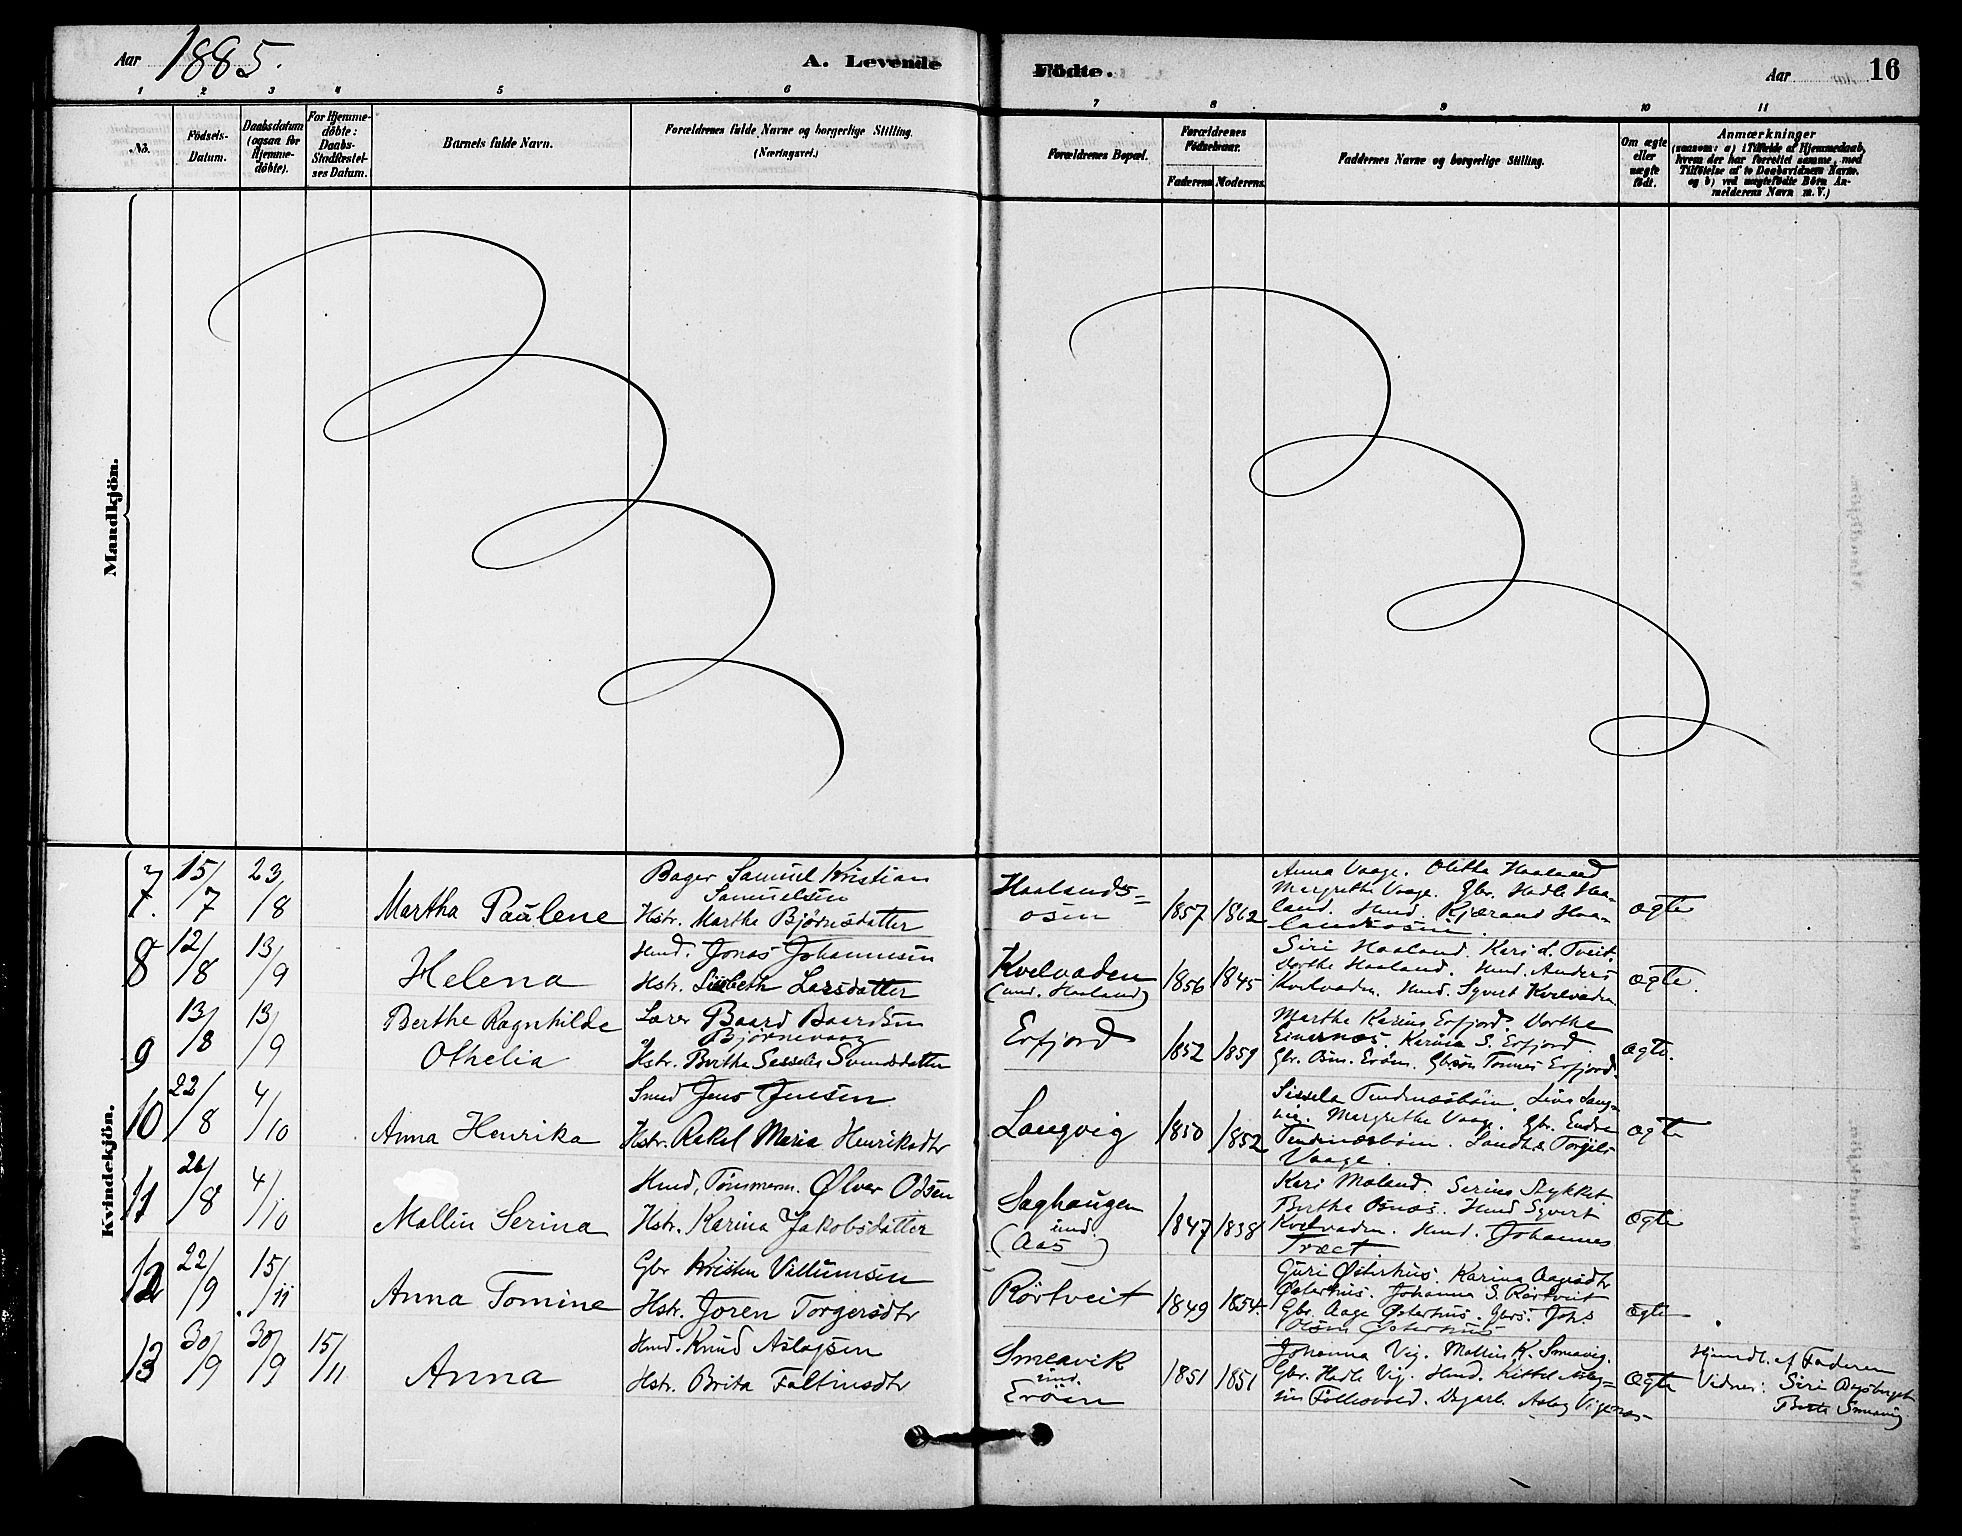 Aar 1885.
A. Levende
Födte.
Aar
16
1 2 3 4 5 6 7 8 9 10 11
No.
Födsels-
Datum.
Daabsdatum
(ogsaa for
Hjemme-
döbte).
For Hjemme-
döbte:
Daabs-
Stadfæstel-
ses Datum.
Barnets fulde Navn.
Forældrenes fulde Navne og borgerlige Stilling.
(Næringsvei.)
Forældrenes Bopæl.
Forældrenes
Födselsaar.
Faderens. Moderens.
Faddernes Navne og borgerlige Stilling.
Om ægte
eller
uægte
födt.
Anmærkninger
(saasom: a) i Tilfælde af Hjemmedaab,
hvem der har forrettet samme, med
Tilföielse af to Daabsvidners Navne.
og b) ved uægtefödte Börn An-
melderens Navn m. V.)
Mandkjön.
Kvindekjön.
7. 15/7 23/8
Martha Paulene
Bager Samuel Kristian
Samuelsen
Hstr. Martha Bjørnsdatter
Haalands-
osen
1857 1862
Anna Vaage. Olitha Haaland
Margrethe Vaage. Gbr. Hadle Haa-
land. Hmd. Kjærand Haa-
landsosen.
ægte
8 12/8 13/9
Helena
Hmd. Jonas Johannesen
Hstr. Lisbeth Larsdatter
Kvelvaden
(und. Haaland)
1856 1845
Siri Haaland. Kari d. Tveit.
Dorthe Haaland. Hmd. Anders
Kvelvaden. Hmd. Syvert Kvelvaden
ægte.
9 13/8 13/9
Berthe Ragnhilde
Othelia
Lærer Baard Baardsen
Bjørnevaag
Hstr. Berthe Svendsdatter
Erfjord
1852 1859
Martha Karine Erfjord. Dorthe
Karina S. Erfjord.
Gbr. Osm. Erøen. Gbrsøn Tønnes Erfjord.
ægte.
10 22/8 4/10
Anna Henrika
Smed Jens Jensen
Hstr. Rakel Maria Henriksdtr
Langvig
1850 1852
Sissela Tindnæsbøen. Lina Lang-
vig. Margrethe Vaage. Gbr. Endre
Tindnæsbøen. Landh. Torgils
Vaage.
ægte
11 26/8 4/10
Mallin Serina
Hmd, Tømmerm. Ølver Odsen
Hstr. Karina Jakobsdatter
Saghaugen
(und. Aas)
1847 1838
Kari Moland. Serina Stykket
Berthe Osnæs. Hmd Syvert
Kvelvaden. Hmd. Johannes
Træet.
ægte
12 22/9 15/11
Anna Tomine
Gbr Kristen Villumsen
Hstr. Joren Torgersdtr
Rörtveit
1849 1854.
Guri Østerhus. Karina Aagesdtr
Østerhus. Johanna S. Rørtveit
Gbr. Aage Østerhus. Gbrs. Johs
Olsen Østerhus
ægte
13 30/9 30/9 15/11
Anna
Hmd. Knud Aslagsen
Hstr. Brita Faltinsdtr
Smeavik
und.
Erøen
1851 1851
Johanna Vig. Mallin K. Smeavig.
Gbr. Hadle Vig. Hmd. Kittel Aslag-
sen Follesvold. Dagarb. Aslag Vigenæs
ægte
Hjemdl. af Faderen
Vidner: Siri
Berte Smeavig